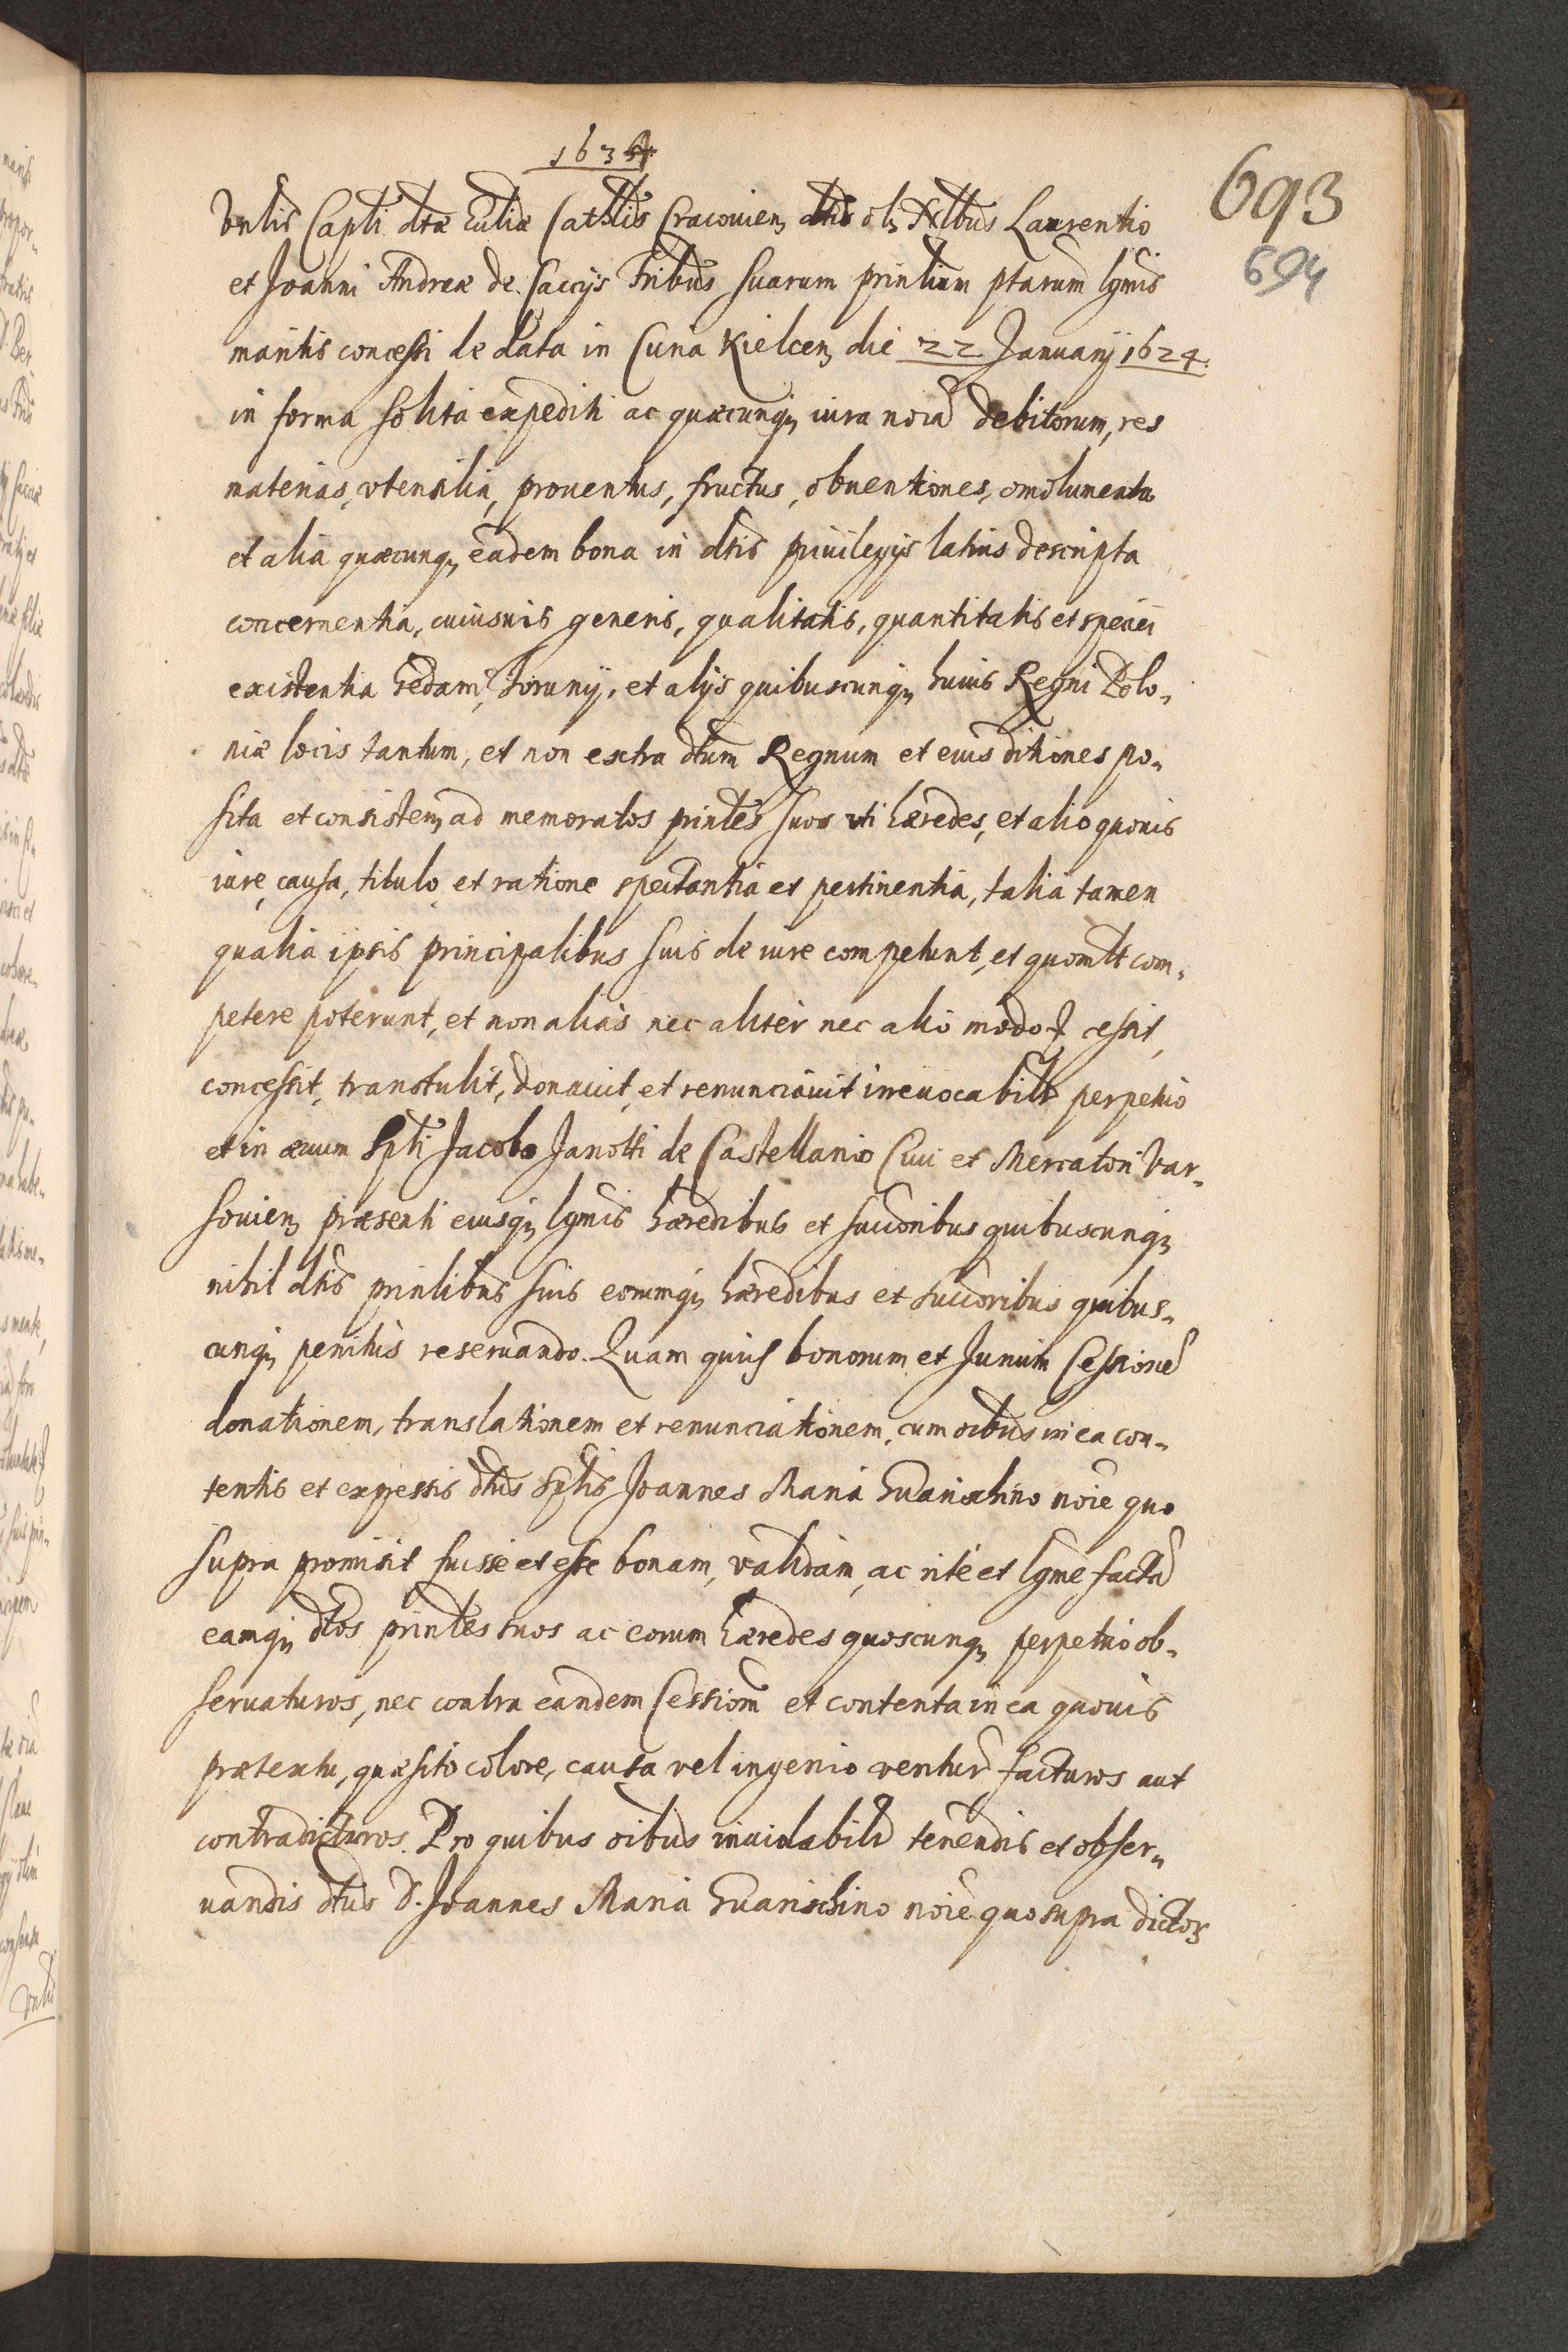 1634
693
694
Vnlis Capli dtæ Eccliæ Cathlis Cracouien, dtis olim Laurentio
et Joanni Andreæ de Saccys Fribus suarum prinlium ptarum lgmis
maritis concessi de data in Curia Kielcen, die 22 January 1624.
in forma solita expediti ac quæcunq, iura noia debitorum, res
materias, vtensilia, prouentus, fructus, obuentiones, emolumenta
et alia quæcunq, eadem bona in dtis priuilegys latius descripta
concernentia, cuiusuis generis, qualitatis, quantitatis et speciei
existentia Gedani, Toruny, et alys quibuscunq, huius Regni Polo„
niæ locis tantum, et non extra dtum Regnum et eius ditiones po„
sita et consisten, ad memoratos prinles suos vti hæredes, et alio quouis
iure, causa, titulo, et ratione spectantia et pertinentia, talia tamen
qualia ipsis principalibus suis de iure competunt, et quomlt com„
petere poterunt, et non alias nec aliter nec alio modo cessit,
concessit, transtulit, donauit, et renunciauit irreuocabilr perpetuo
et in æuum Spli Jacobo Janotti de Castellanio Ciui et Mercatori Var„
souien, præsenti eiusq, lgmis hæredibus et succoribus quibuscunq,
nihil dtis prinlibus suis eorumq, hæredibus et succoribus quibus„
cunq, penitus reseruando. Quam quid bonorum et Jurium Cessione
donationem, translationem et renunciationem, cum oibus in ea con„
tentis et expressis dtus Splis Joannes Maria Guarischino noie quo
supra promisit fuisse et esse bonam, validam, ac rite et lgme facta
eamq, dtos prinles suos ac eorum hæredes quoscunq, perpetuo ob„
seruaturos, nec contra eandem Cessiom et contenta in ea quouis
prætextu, quæsito colore, causa vel ingenio ventur facturos aut
contradicturos. Pro quibus oibus inuiolabilr tenendis et obser„
uandis dtus D. Joannes Maria Guarischino noie quo supra dictor